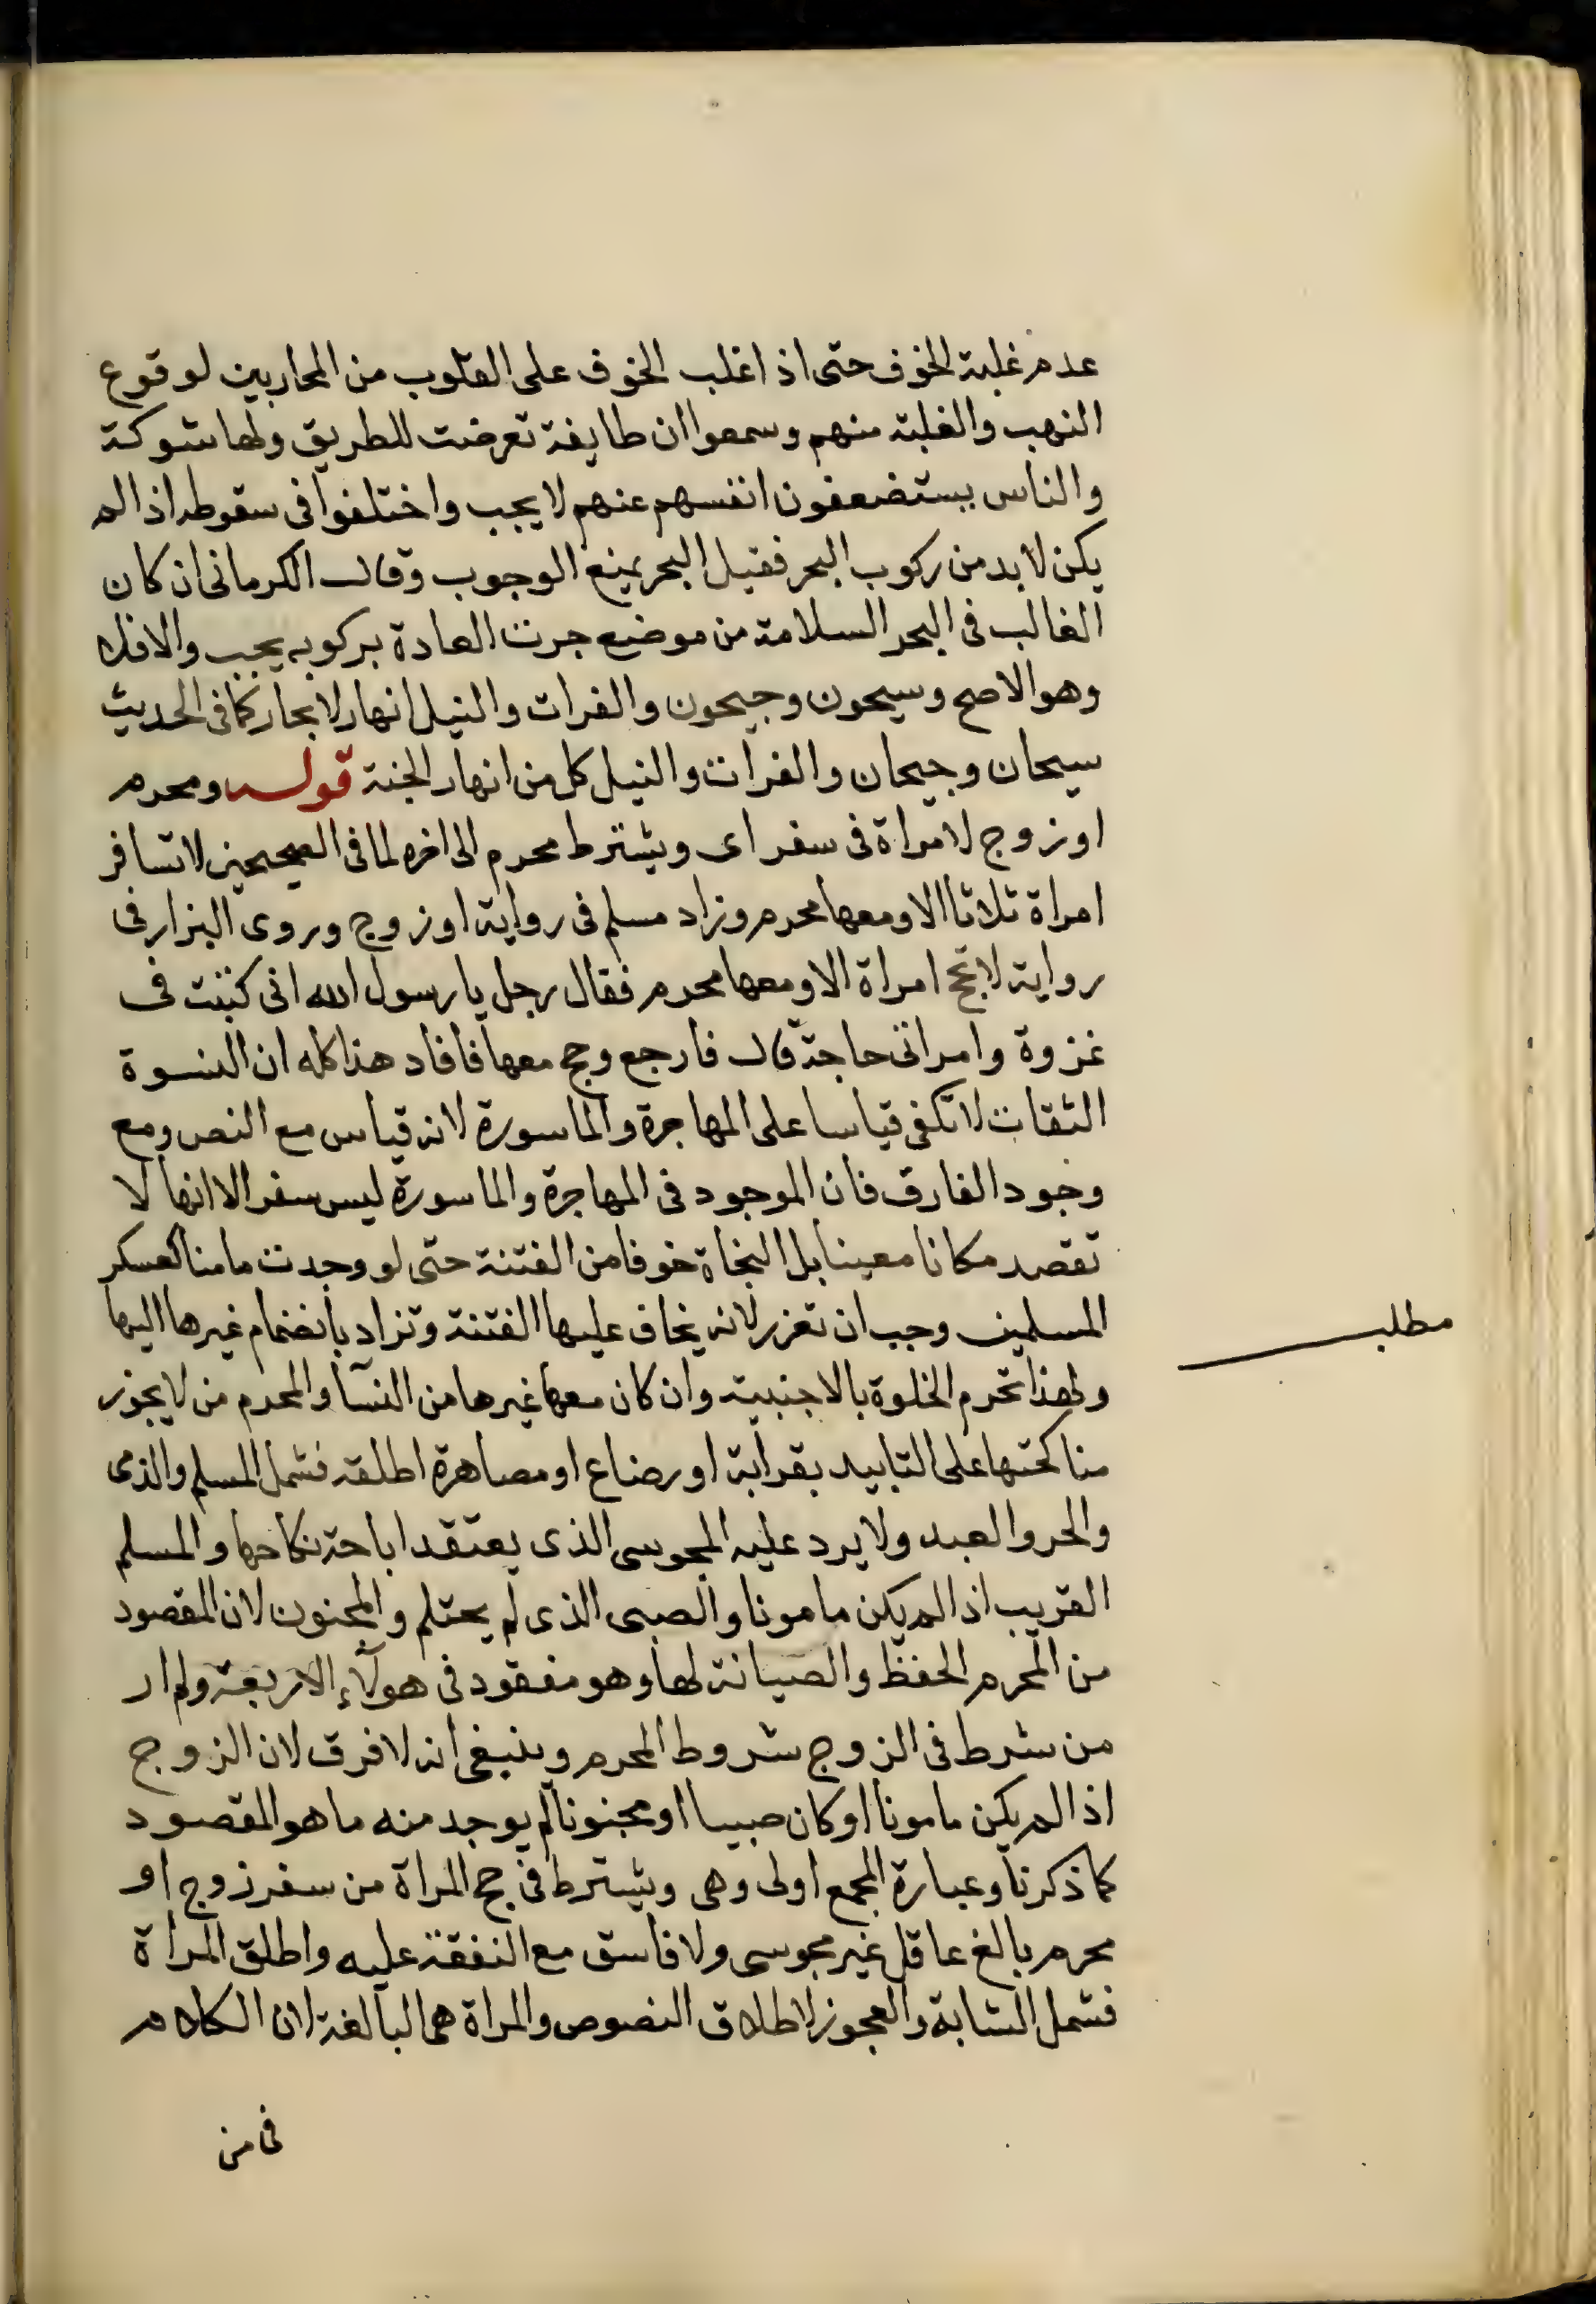 عدم غلبة الخوف حتى اذا غلب الخوف على القلوب من المحاربين لوقوع
النهب والغلبة منهم وسمعوا ان طايفة تعرضت للطريق ولها شوكة
والناس يستضعفون انفسهم عنهم لا يجب واختلفوا فى سقوطه اذا لم
يكن لا بد من ركوب البحر فقيل البحر يمنع الوجوب وقال الكرمانى ان كان
الغالب فى البحر السلامة من موضع جرت العادة بركوبه يجب والا فلا
وهو الاصح وسيحون وجيحون والفرات والنيل انهار لا بحار كما فى الحديث
سيحان وجيحان والفرات والنيل كل من انهار الجنة قوله ومحرم
او زوج لامراة فى سفر اى ويشترط محرم الى اخره لما فى الصحيحين لا تسافر
امراة ثلاثا الا ومعها محرم وزاد مسلم فى رواية او زوج وروى البزار فى
رواية لا تحج امراة الا ومعها محرم فقال رجل يا رسول الله انى كتبت فى
غزوة وامراتى حاجة قال فارجع وحج معها فافاد هذا كله ان النسوة
الثقات لا تكفى قياسا على المهاجرة والماسورة لانه قياس مع النص ومع
وجود الفارق فان الموجود فى المهاجرة والماسورة ليس سفرا لانها لا
تقصد مكانا معينا بل النجاة خوفا من الفتنة حتى لو وجدت مامنا كعسكر
المسلمين وجب ان تعزر لانه يخاف عليها الفتنة وتزاد بانضمام غيرها اليها
ولهذا تحرم الخلوة بالاجنبية وان كان معها غيرها من النسآ والمحرم من لا يجوز
مناكحتها على التابيد بقرابة او رضاع او مصاهرة اطلقه فشمل المسلم والذمى
والحر والعبد ولا يرد عليه المجوسى الذى يعتقد اباحة نكاحها والمسلم
القريب اذا لم يكن مامونا والصبى الذى لم يحتلم والمجنون لان المقصود
من المحرم الحفظ والصيانة لها وهو مفقود فى هولآء الاربعة ولم ار
من شرط فى الزوج شروط المحرم وينبغى انه لا فرق لان الزوج
اذا لم يكن مامونا او كان صبيا او مجنونا لم يوجد منه ما هو المقصود
كما ذكرنا وعبارة المجمع اولى وهى ويشترط فى حج المراة من سفر زوج او
محرم بالغ عاقل غير مجوسى ولا فاسق مع النفقة عليه واطلق المراة
فشمل الشابة والعجوز لاطلاق النصوص والمراة هى البالغة لان الكلام
فى من
مطلب